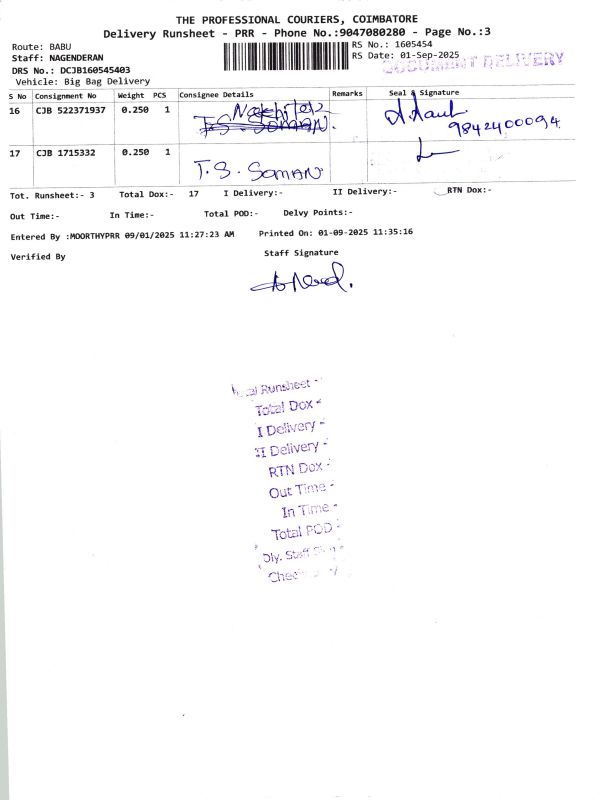 THE PROFESSIONAL COURIERS, COIMBATORE
Delivery Runsheet - PRR - Phone No.:9047080280 - Page No.:3
Route: BABU
Staff: NAGENDERAN
DRS No.: DCJB160545403
Vehicle: Big Bag Delivery
RS No.: 1605454
RS Date: 01-Sep-2025
DOCUMENT DELIVERY
S No Consignment No Weight PCS Consignee Details Remarks Seal & Signature
16 CJB 522371937 0.250 1 T.S. SOMAN. 9842400094
17 CJB 1715332 0.250 1 T.S. SOMAN.
Tot. Runsheet:- 3 Total Dox:- 17 I Delivery:- II Delivery:- RTN Dox:-
Out Time:- In Time:- Total POD:- Delvy Points:-
Entered By :MOORTHYPRR 09/01/2025 11:27:23 AM Printed On: 01-09-2025 11:35:16
Verified By Staff Signature
Total Runsheet -
Total Dox -
I Delivery -
II Delivery -
RTN Dox -
Out Time -
In Time -
Total POD -
Dly. Staff